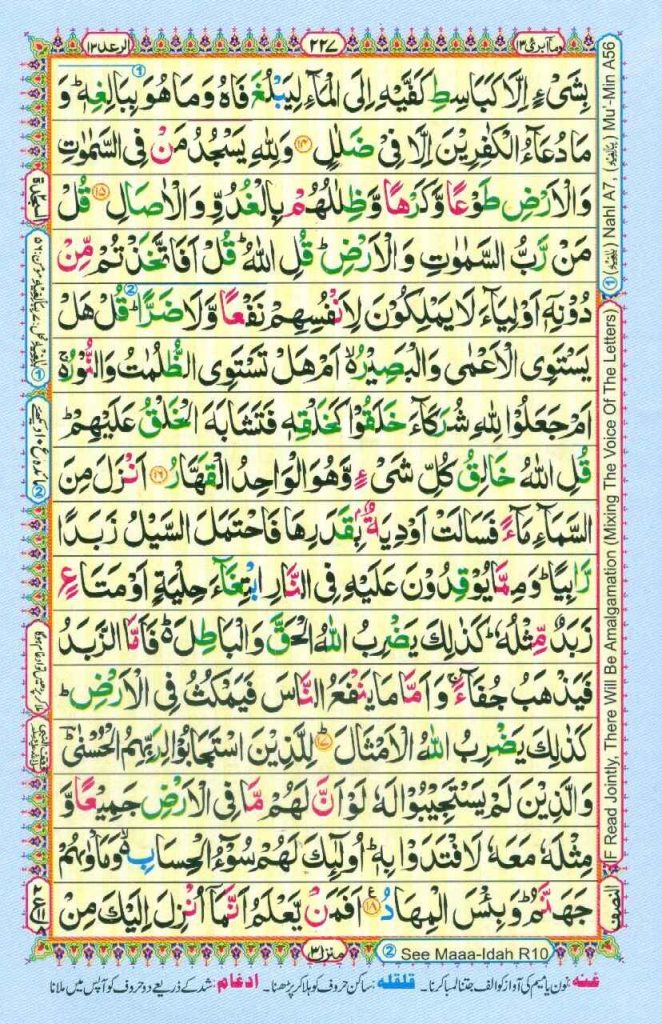 الرعد ١٣
٢٢٧
وما ابرئ ١٣
بِشَيْءٍ اِلَّا كَبَاسِطِ كَفَّيْهِ اِلَى الْمَآءِ لِيَبْلُغَ فَاهُ وَمَا هُوَ بِبَالِغِهٖ ؕ وَ
مَا دُعَآءُ الْكٰفِرِيْنَ اِلَّا فِيْ ضَلٰلٍ ﴿۱۴﴾ وَلِلّٰهِ يَسْجُدُ مَنْ فِى السَّمٰوٰتِ
وَالْاَرْضِ طَوْعًا وَّكَرْهًا وَّظِلٰلُهُمْ بِالْغُدُوِّ وَالْاٰصَالِ ﴿۱۵﴾ قُلْ
مَنْ رَّبُّ السَّمٰوٰتِ وَالْاَرْضِ ؕ قُلِ اللّٰهُ ؕ قُلْ اَفَاتَّخَذْتُمْ مِّنْ
دُوْنِهٖۤ اَوْلِيَآءَ لَا يَمْلِكُوْنَ لِاَنْفُسِهِمْ نَفْعًا وَّلَا ضَرًّا ؕ قُلْ هَلْ
يَسْتَوِى الْاَعْمٰى وَالْبَصِيْرُ ۙ اَمْ هَلْ تَسْتَوِى الظُّلُمٰتُ وَالنُّوْرُ ۚ
اَمْ جَعَلُوْا لِلّٰهِ شُرَكَآءَ خَلَقُوْا كَخَلْقِهٖ فَتَشَابَهَ الْخَلْقُ عَلَيْهِمْ ؕ
قُلِ اللّٰهُ خَالِقُ كُلِّ شَيْءٍ وَّهُوَ الْوَاحِدُ الْقَهَّارُ ﴿۱۶﴾ اَنْزَلَ مِنَ
السَّمَآءِ مَآءً فَسَالَتْ اَوْدِيَةٌۢ بِقَدَرِهَا فَاحْتَمَلَ السَّيْلُ زَبَدًا
رَّابِيًا ؕ وَمِمَّا يُوْقِدُوْنَ عَلَيْهِ فِى النَّارِ ابْتِغَآءَ حِلْيَةٍ اَوْ مَتَاعٍ
زَبَدٌ مِّثْلُهٗ ؕ كَذٰلِكَ يَضْرِبُ اللّٰهُ الْحَقَّ وَالْبَاطِلَ ؕ۬ فَاَمَّا الزَّبَدُ
فَيَذْهَبُ جُفَآءً ۚ وَاَمَّا مَا يَنْفَعُ النَّاسَ فَيَمْكُثُ فِى الْاَرْضِ ؕ
كَذٰلِكَ يَضْرِبُ اللّٰهُ الْاَمْثَالَ ﴿۱۷﴾ لِلَّذِيْنَ اسْتَجَابُوْا لِرَبِّهِمُ الْحُسْنٰى ؕ
وَالَّذِيْنَ لَمْ يَسْتَجِيْبُوْا لَهٗ لَوْ اَنَّ لَهُمْ مَّا فِى الْاَرْضِ جَمِيْعًا وَّ
مِثْلَهٗ مَعَهٗ لَافْتَدَوْا بِهٖ ؕ اُولٰٓئِكَ لَهُمْ سُوْٓءُ الْحِسَابِ ۙ وَمَاْوٰىهُمْ
جَهَنَّمُ ؕ وَبِئْسَ الْمِهَادُ ﴿۱۸﴾ اَفَمَنْ يَّعْلَمُ اَنَّمَآ اُنْزِلَ اِلَيْكَ مِنْ
منزل ٣
② See Maaa-Idah R10
غنه: نون یا میم کی آواز کو الف جتنا لمبا کرنا۔ قلقله: ساکن حروف کو ہلا کر پڑھنا۔ ادغام: شد کے ذریعے دو حروف کو آپس میں ملانا
① Nahl A7, Mu'-Min A56
IF Read Jointly, There Will Be Amalgamation (Mixing The Voice Of The Letters)
السجدة
النصف